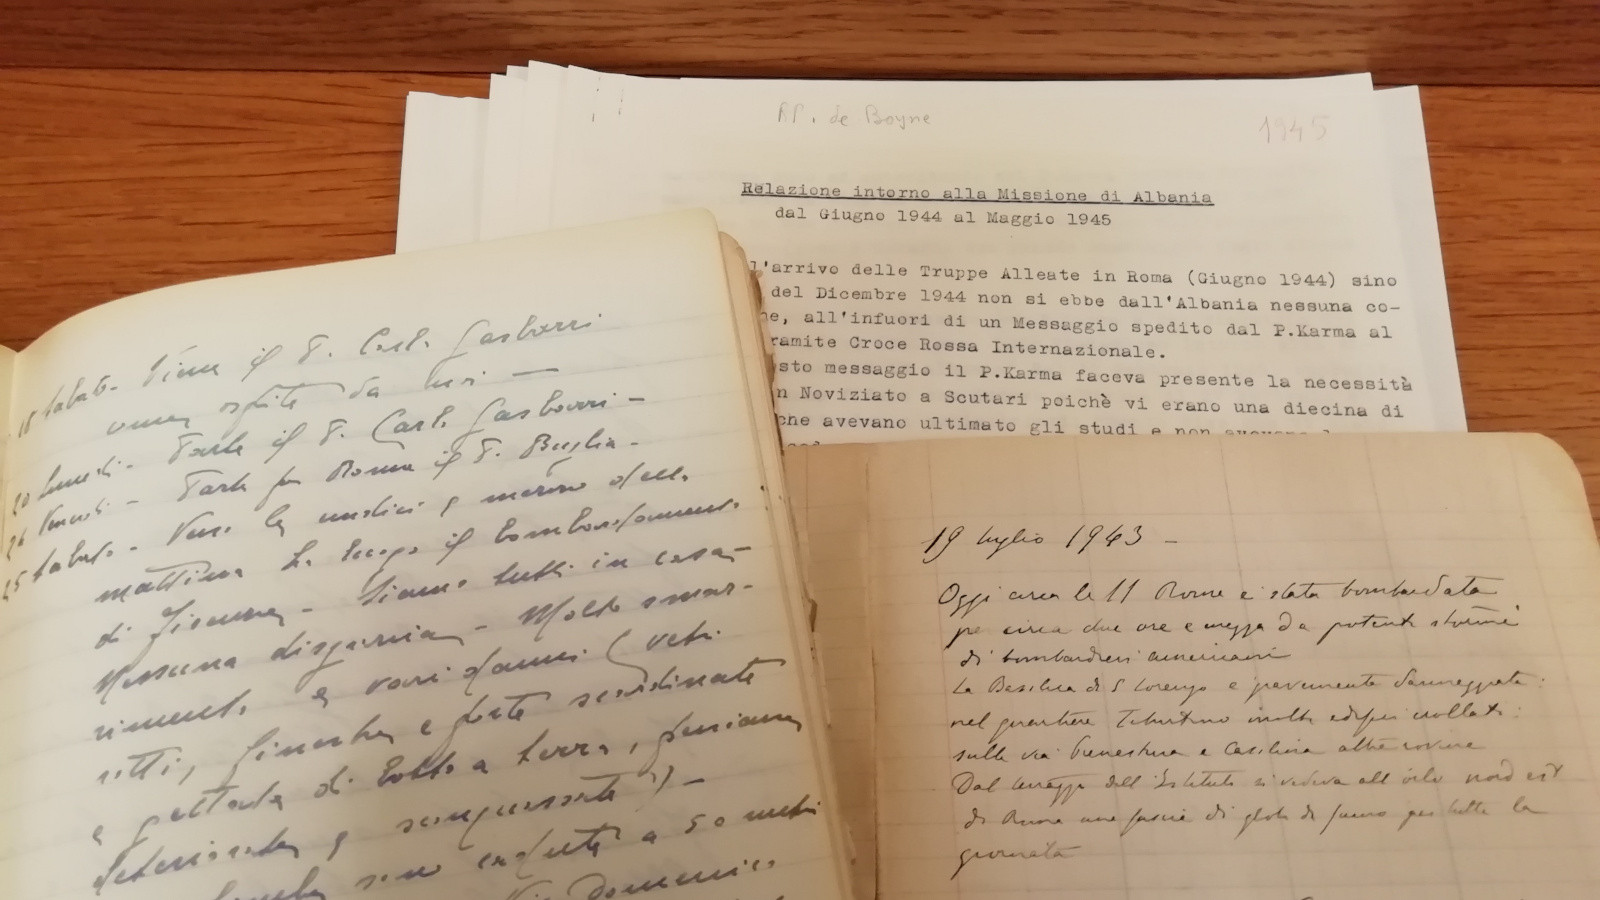 RP. de Boyne
1945
Relazione intorno alla Missione di Albania
dal Giugno 1944 al Maggio 1945
l'arrivo delle Truppe Alleate in Roma (Giugno 1944) sino
del Dicembre 1944 non si ebbe dall'Albania nessuna co-
ne, all'infuori di un Messaggio spedito dal P.Karma al
ramite Croce Rossa Internazionale.
sto messaggio il P.Karma faceva presente la necessità
n Noviziato a Scutari poichè vi erano una diecina di
che avevano ultimato gli studi e non avevano
18 Sabato - Viene il P. Carlo Gasbarri
ospite da noi —
20 Lunedì - Parte il P. Carlo Gasbarri -
24 Venerdì - Parte per Roma il P. Buglia -
25 Sabato - Verso le undici e mezzo della
mattina ha luogo il bombardamento
di - Siamo tutti in casa -
Nessuna disgrazia - Molto smar-
rimento e vari danni (vetri
rotti, finestre e porte scardinate
e gettate di botto a terra, persiane
deteriorate e sconquassate) -
sono cadute a 50 metri
Via Domenico
19 luglio 1943 -
Oggi circa le 11 Roma è stata bombardata
per circa due ore e mezza da potenti stormi
di bombardieri americani
La Basilica di S Lorenzo è gravemente danneggiata:
nel quartiere Tiburtino molti edifici crollati:
sulla via Prenestina e Casilina altre rovine
Dal terrazzo dell'Istituto si vedeva all' nord est
di Roma una fascia di globi di fumo per tutta la
giornata